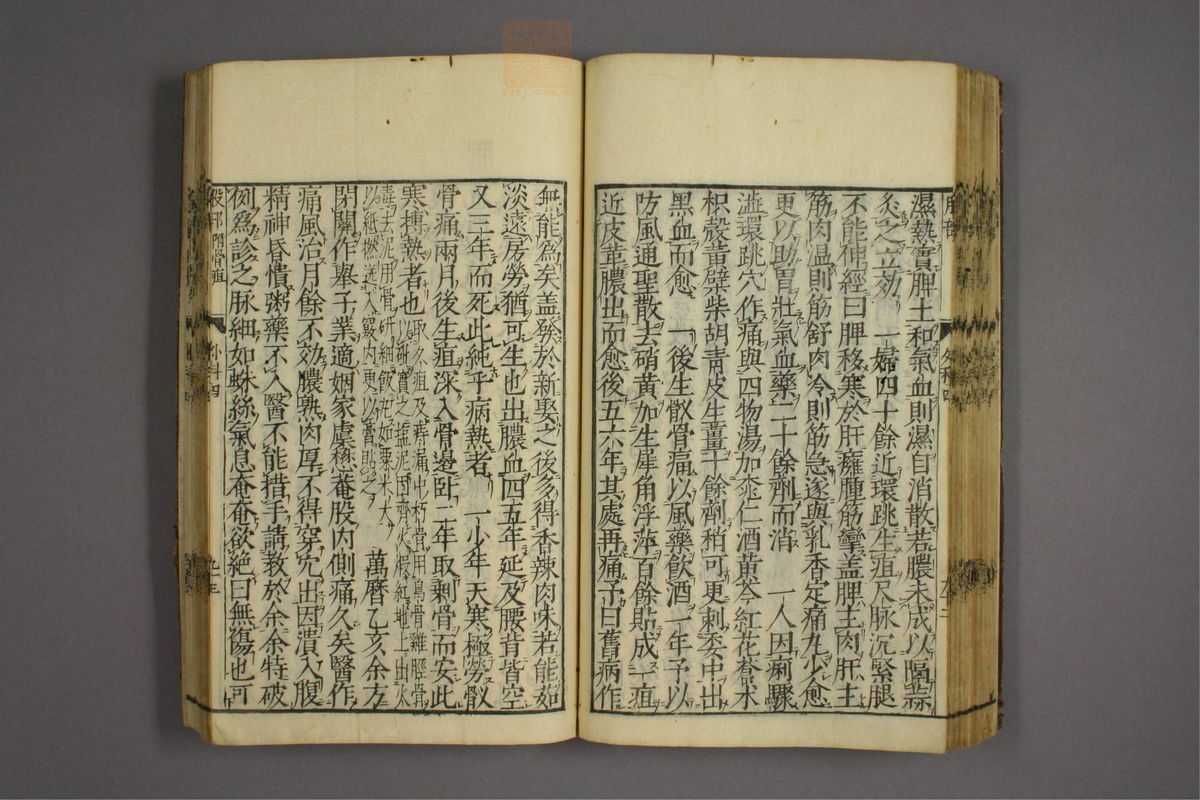 濕熱實脾土和氣血則濕自消散若膿未成以隔蒜
灸之立効　一婦四十餘近環跳生疽尺脉沉緊腿
不能伸經曰脾移寒於肝癰腫筋攣盖脾主肉肝主
筋肉温則筋舒肉冷則筋急遂與乳香定痛丸少愈
更以助胃壯氣血藥二十餘劑而消　一人因痢驟
澁環跳穴作痛與四物湯加桃仁酒黄芩紅花蒼术
枳殻黄蘗柴胡青皮生薑十餘劑稍可更刺委中出
黒血而愈　一後生散骨痛以風藥飲酒一年予以
防風通聖散去硝黄加生犀角浮萍百餘貼成一疽
近皮革膿出而愈後五六年其處再痛予曰舊病作
無能爲矣盖發於新娶之後多得香辣肉味若能茹
淡遠房勞猶可生也出膿血四五年延及腰背皆空
又三年而死此純乎病熱者　一少年天寒極勞散
骨痛兩月後生疽深入骨邊卧二年取剩骨而安此
寒搏熱者也取久疽及痔漏中朽骨用烏骨雞脛骨
以砒實之塩泥固濟火煅紅地上出火
毒去泥用骨研細飯丸如粟米大
以紙撚送入竅内更以膏貼之　萬曆乙亥余方
閉關作舉子業適姻家虞懋菴股内側痛久矣醫作
痛風治月餘不効膿熟肉厚不得穿穴出因潰入腹
精神昏憒粥藥不入醫不能措手請教於余余特破
例爲診之脉細如蛛絲氣息奄奄欲絶曰無傷也可
股部　附骨疽　外科四　九十三